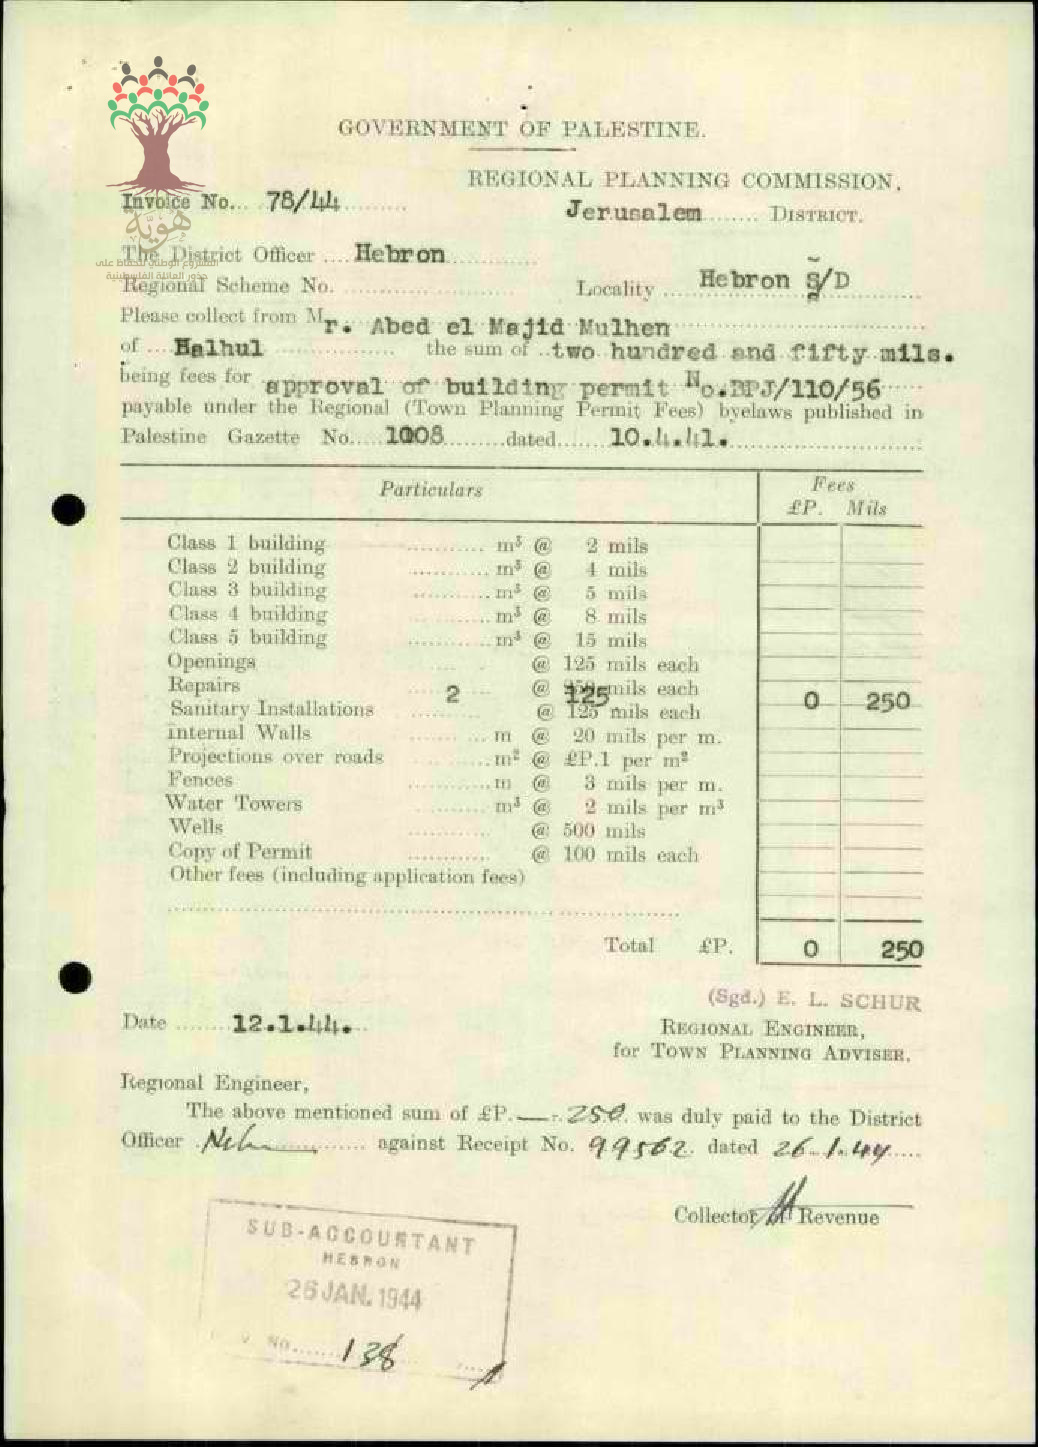 GOVERNMENT OF PALESTINE.
REGIONAL PLANNING COMMISSION,
Invoice No... 78/44
Jerusalem DISTRICT.
هوية
المشروع الوطني للحفاظ على
جذور العائلة الفلسطينية
The District Officer .... Hebron
Regional Scheme No.
Locality Hebron S/D
Please collect from Mr. Abed el Majid Mulhen
of .... Halhul the sum of two hundred and fifty mils.
being fees for approval of building permit No.RPJ/110/56
payable under the Regional (Town Planning Permit Fees) byelaws published in
Palestine Gazette No. 1008 dated 10.4.41.
Particulars Fees
£P. Mils
Class 1 building m³ @ 2 mils
Class 2 building m³ @ 4 mils
Class 3 building m³ @ 5 mils
Class 4 building m³ @ 8 mils
Class 5 building m³ @ 15 mils
Openings @ 125 mils each
Repairs 2 @ 125 mils each 0 250
Sanitary Installations @ 125 mils each
Internal Walls m @ 20 mils per m.
Projections over roads m² @ £P.1 per m²
Fences m @ 3 mils per m.
Water Towers m³ @ 2 mils per m³
Wells @ 500 mils
Copy of Permit @ 100 mils each
Other fees (including application fees)
Total £P. 0 250
(Sgd.) E. L. SCHUR
Date 12.1.44.
REGIONAL ENGINEER,
for TOWN PLANNING ADVISER.
Regional Engineer,
The above mentioned sum of £P. —.250. was duly paid to the District
Officer against Receipt No. 99562. dated 26.1.44
Collector of Revenue
SUB-ACCOUNTANT
HEBRON
26 JAN. 1944
No. 138